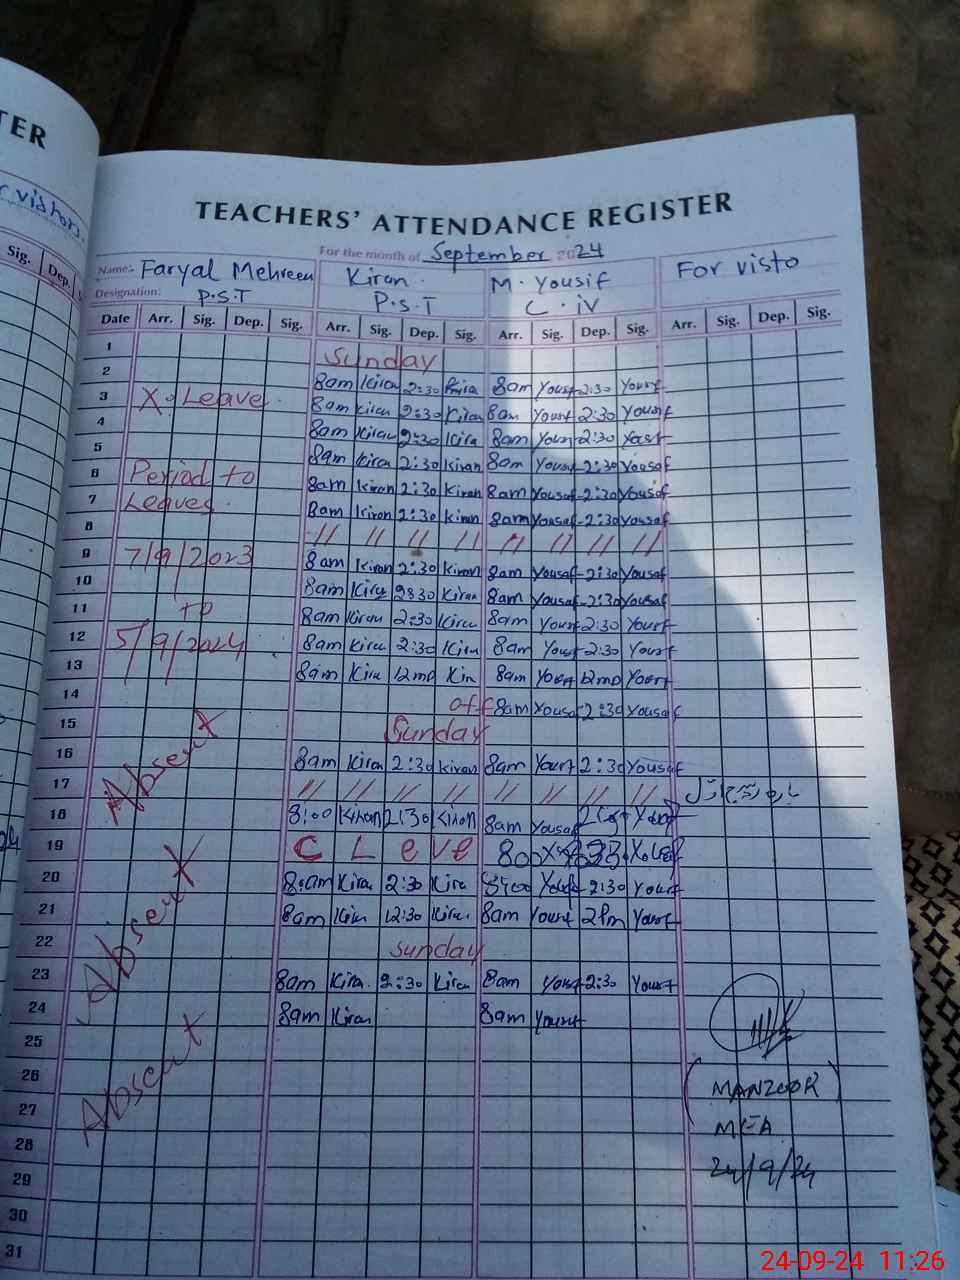 TER
r vistors.
Sig. Dep. S
TEACHERS' ATTENDANCE REGISTER
For the month of September 2024
Name:- Faryal Mehreen Kiran. M. Yousif For visto
Designation: P.S.T P.S.T C. iV
Date Arr. Sig. Dep. Sig. Arr. Sig. Dep. Sig. Arr. Sig. Dep. Sig. Arr. Sig. Dep. Sig.
1 Sunday
2 8am Kiran 2:30 Kira 8am Yousf 2:30 Yousf
3 X. Leave. 8am Kiran 2:30 Kiran 8am Yousf 2:30 Yousf
4 8am Kiran 2:30 Kira 8am Yousf 2:30 Yousf
5 8am Kiran 2:30 Kiran 8am Yousaf 2:30 Yousaf
6 Period to 8am Kiran 2:30 Kiran 8am Yousaf 2:30 Yousaf
7 Leaves. 8am Kiran 2:30 Kiran 8am Yousaf 2:30 Yousaf
8 // // // // // // // //
9 7/9/2023 8am Kiran 2:30 Kiran 8am Yousaf 2:30 Yousaf
10 8am Kiru 2:30 Kiran 8am Yousaf 2:30 Yousaf
11 to 8am Kiran 2:30 Kiru 8am Yousf 2:30 Yousf
12 5/9/2024 8am Kiru 2:30 Kiru 8am Yousf 2:30 Yousf
13 8am Kiru 12 Kin 8am Yousf 12 Yousf
14 off 8am Yousaf 2:30 Yousaf
15 Absent Sunday
16 8am Kiran 2:30 Kiran 8am Yousf 2:30 Yousaf
17 // // // // // // // //
18 8:00 Kiran 2:30 Kiran 8am Yousaf
19 C L e ve 800
20 Absent 8:am Kira 2:30 Kira 8:00 Yousf 2:30 Yousf
21 8am Kiru 12:30 Kiru. 8am Yousf 2Pm Yousf
22 Sunday
23 8am Kira. 2:30 Kiran 8am Yousf 2:30 Yousf
24 8am Kiran 8am Yousf
25 Absent
26
(MANZOOR)
27
MEA
28
24/9/24
29
30
31
24-09-24 11:26